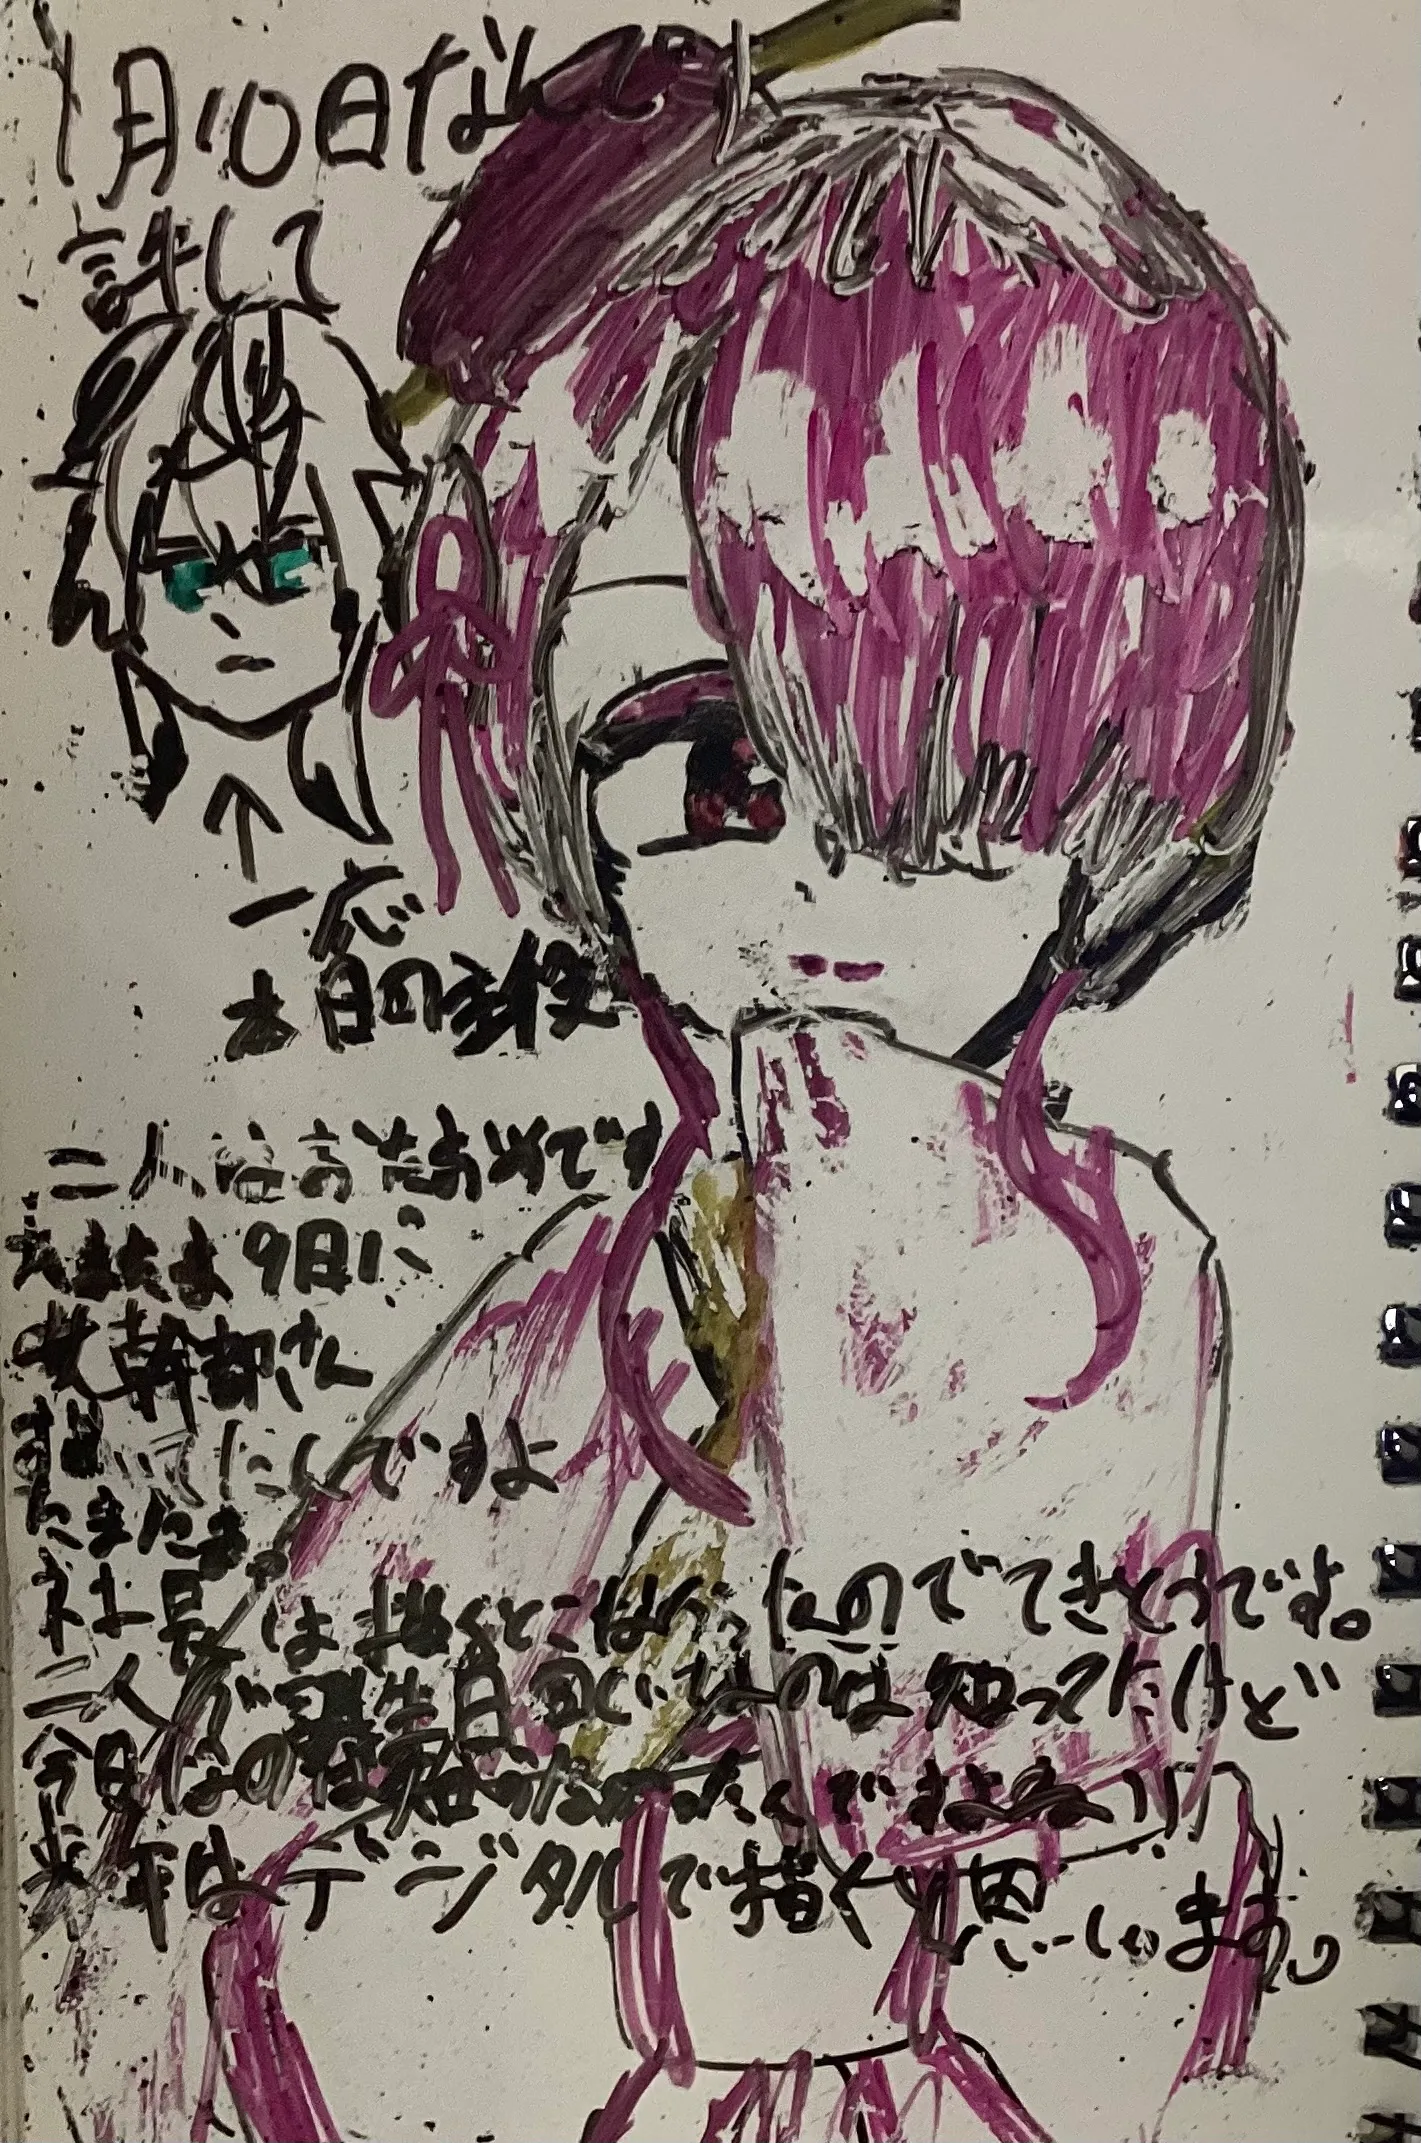 1月10日なんで
許して
↑
一応
本日の主役
二人はお詰めです
たまたま9日に
女幹部さん
描いてたんですよ
たまたま。
社長は描くとこなかったのでてきとうです。
二人が誕生日回じなのは知ってたけど
今日なのは知らなかったんですよね!!
来年はデジタルで描くと思います。